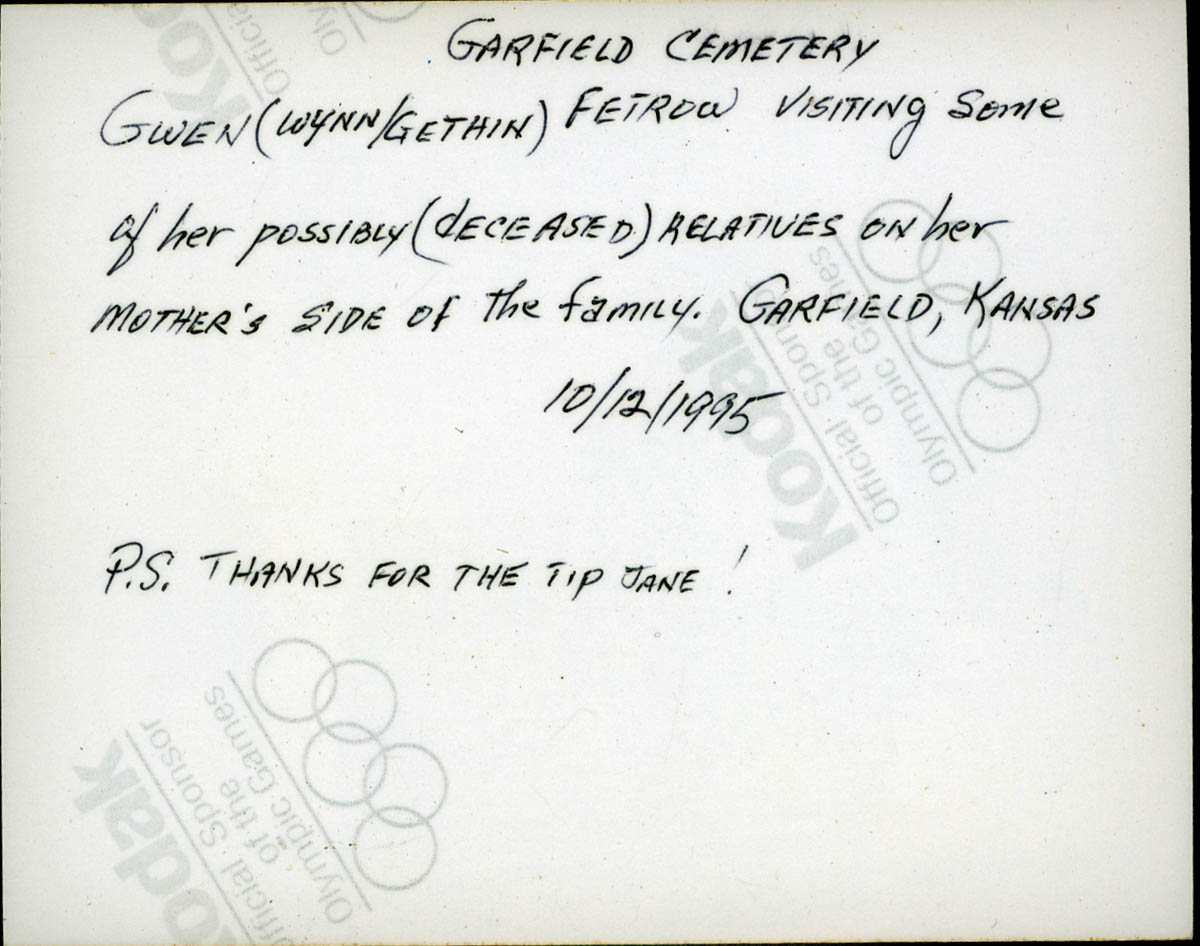 GARFIELD CEMETERY
GWEN (WYNN/GETHIN) FETROW VISITING Some
of her POSSIBLY (dECEASED) RELATIVES ON her
MOTHER'S SIDE OF the family. GARFIELD, KANSAS
10/12/1995
P.S. THANKS FOR THE TIP JANE!
Kodak
Official Sponsor
of the
Olympic Games
Kodak
Official Sponsor
of the
Olympic Games